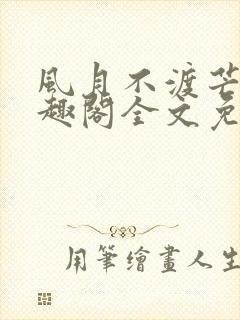 風月不渡芒
趣閣全文免
用筆繪畫人生